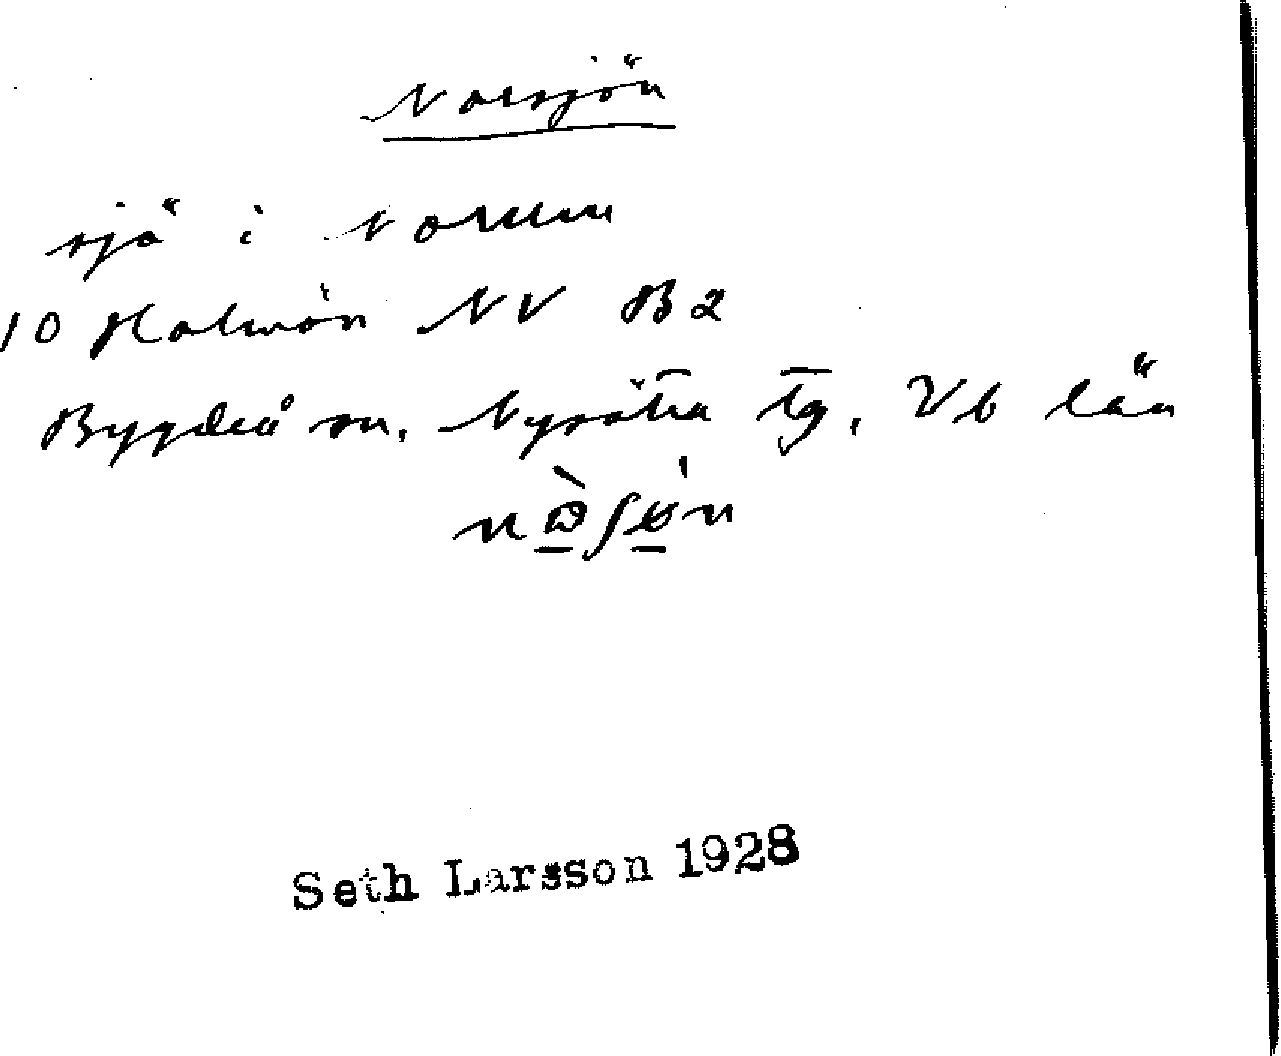 Norsjön
sjö i Norum
10 Holmön NV B2
Bygdeå sn. Nysätra tg, Vb län
Seth Larsson 1928